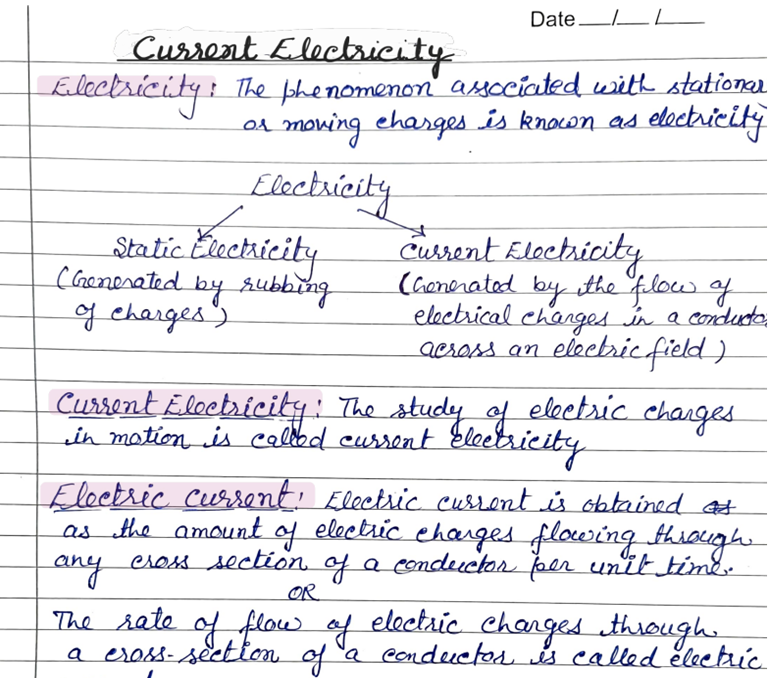 Date __/__/__
Current Electricity
Electricity: The phenomenon associated with stationar
or moving charges is known as electricity
Electricity
Static Electricity Current Electricity
(Generated by rubbing (Generated by the flow of
of charges) electrical charges in a conducto
across an electric field)
Current Electricity: The study of electric charges
in motion is called current electricity
Electric current: Electric current is obtained
as the amount of electric charges flowing through
any cross section of a conductor per unit time.
OR
The rate of flow of electric charges through
a cross-section of a conductor is called electric